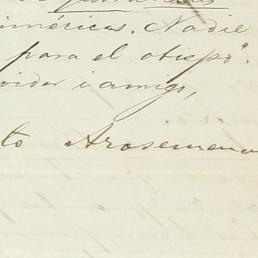 iméricas. Nadie
para el obispo".
vidor i amigo,
to Arosemena